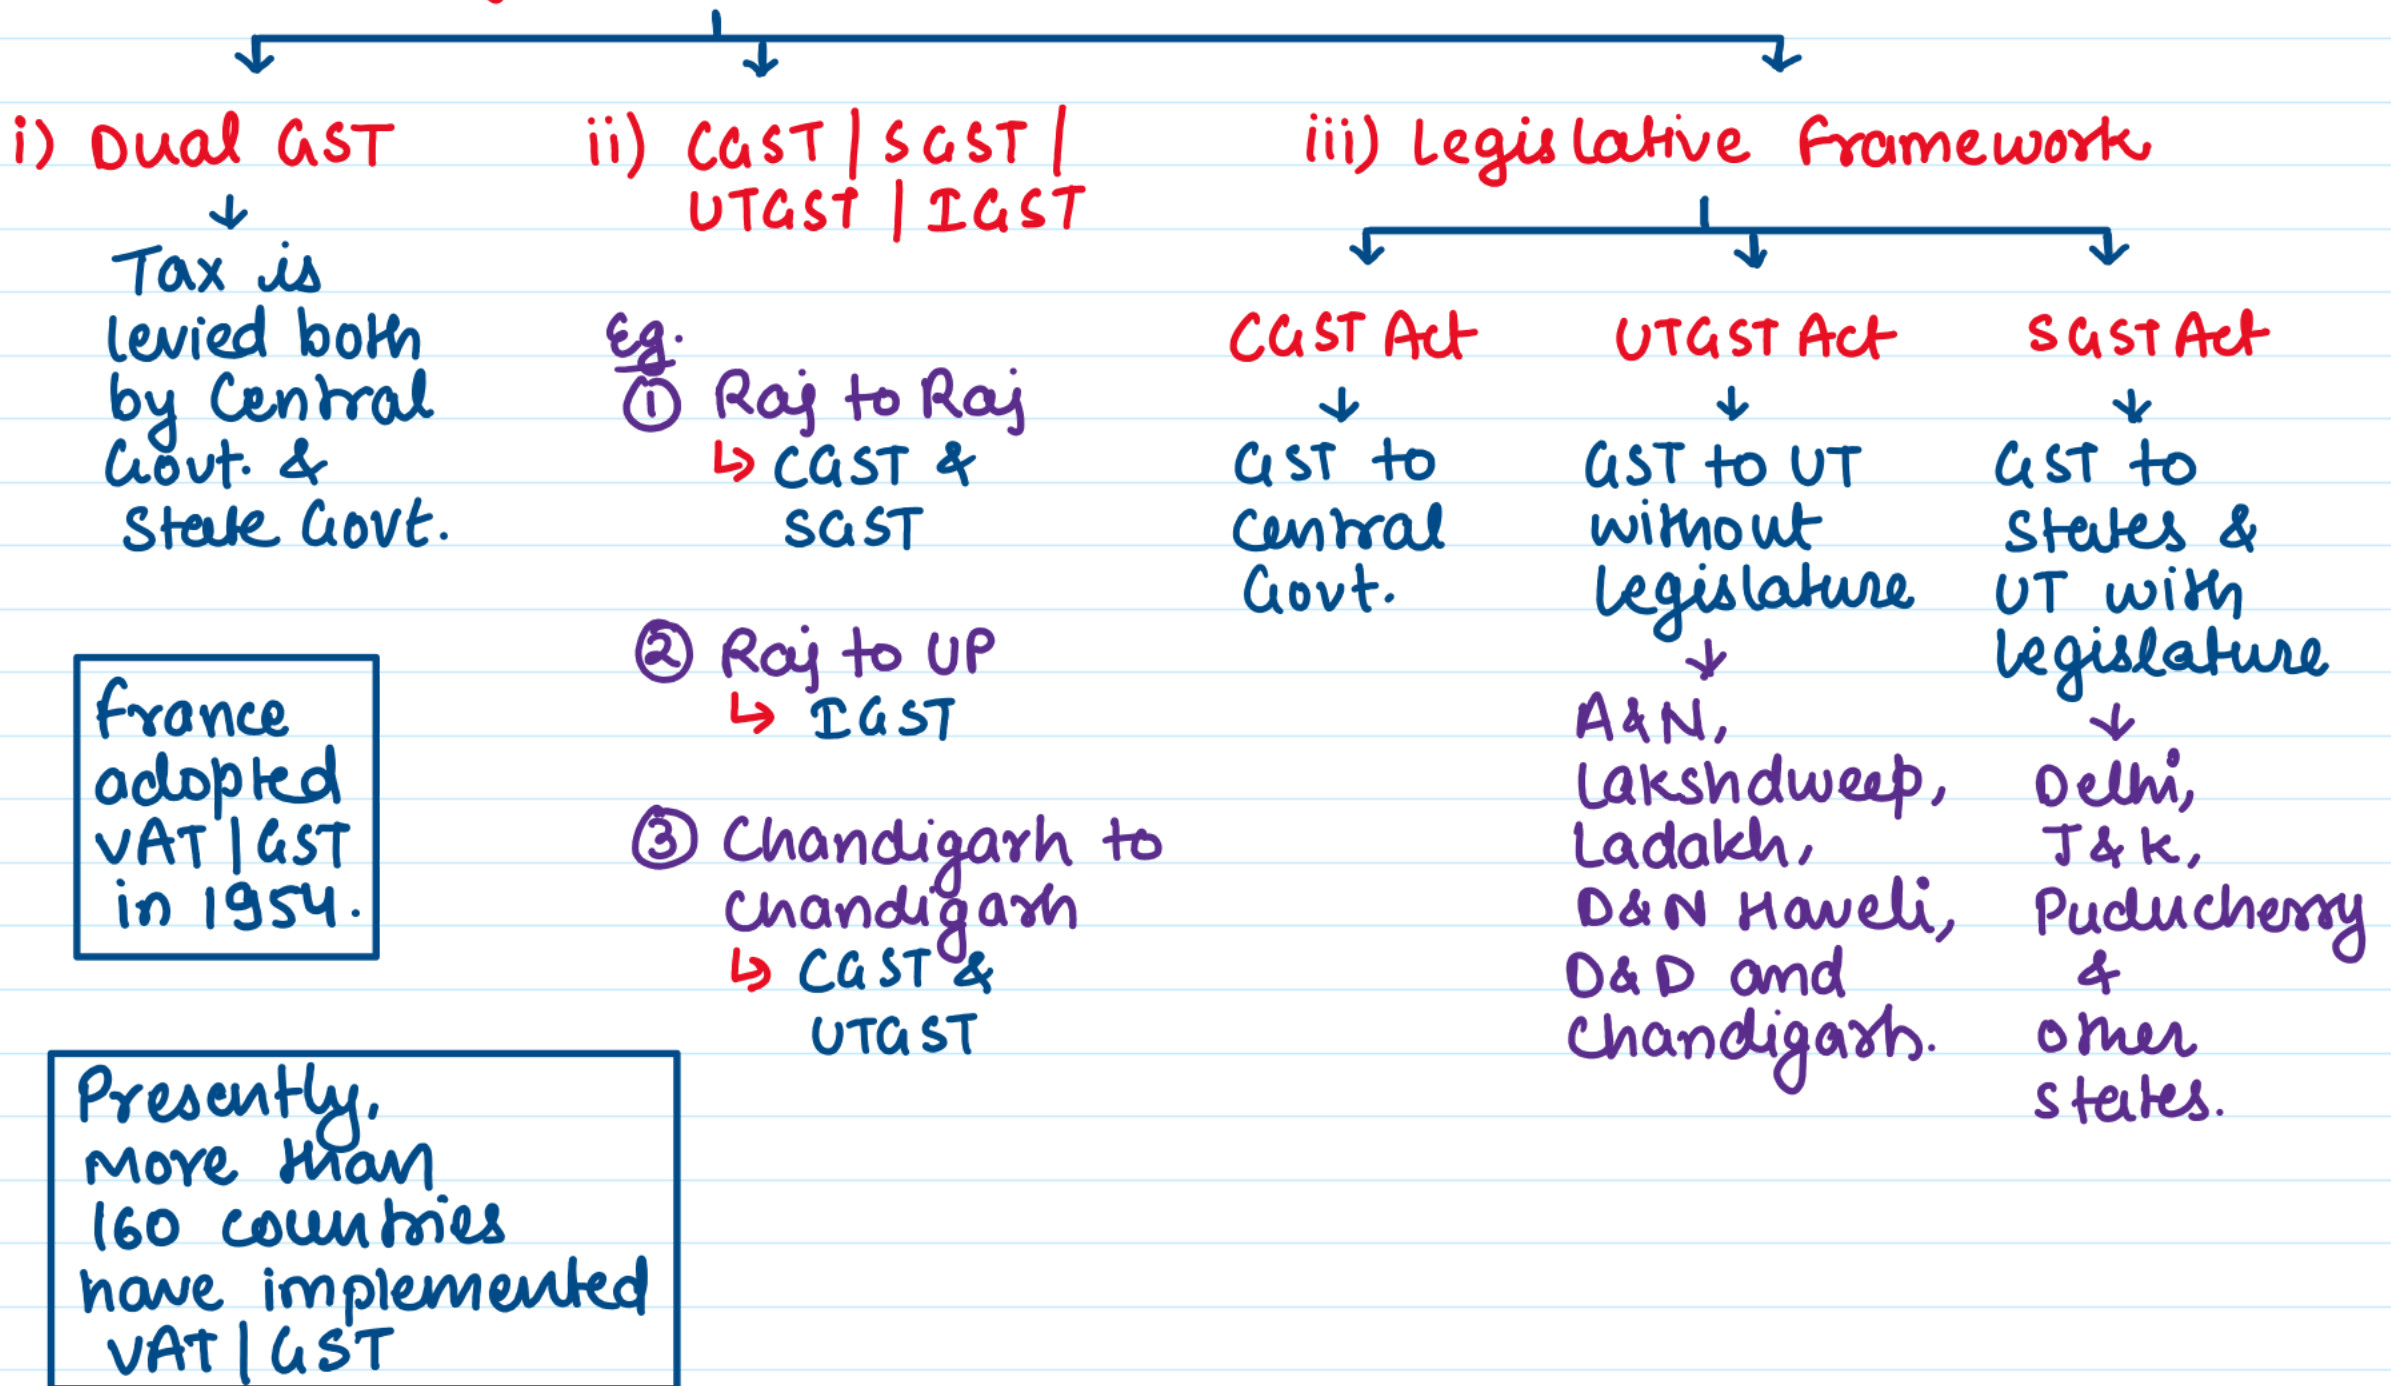 i) Dual GST
↓
Tax is
levied both
by Central
Govt. &
State Govt.
France
adopted
VAT | GST
in 1954.
Presently,
more than
160 countries
have implemented
VAT | GST
ii) CGST | SGST |
UTGST | IGST
Eg.
① Raj to Raj
↳ CGST &
SGST
② Raj to UP
↳ IGST
③ Chandigarh to
Chandigarh
↳ CGST &
UTGST
iii) Legislative Framework
CGST Act
↓
GST to
Central
Govt.
UTGST Act
↓
GST to UT
without
Legislature
↓
A&N,
Lakshdweep,
Ladakh,
D&N Haveli,
D&D and
Chandigarh.
SGST Act
↓
GST to
States &
UT with
legislature
↓
Delhi,
J&K,
Puducherry
&
other
states.